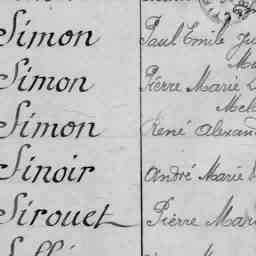 Simon Paul Emile
Simon Pierre Marie
Simon René Alexand
Sinoir André Marie
Sirouet Pierre Mari